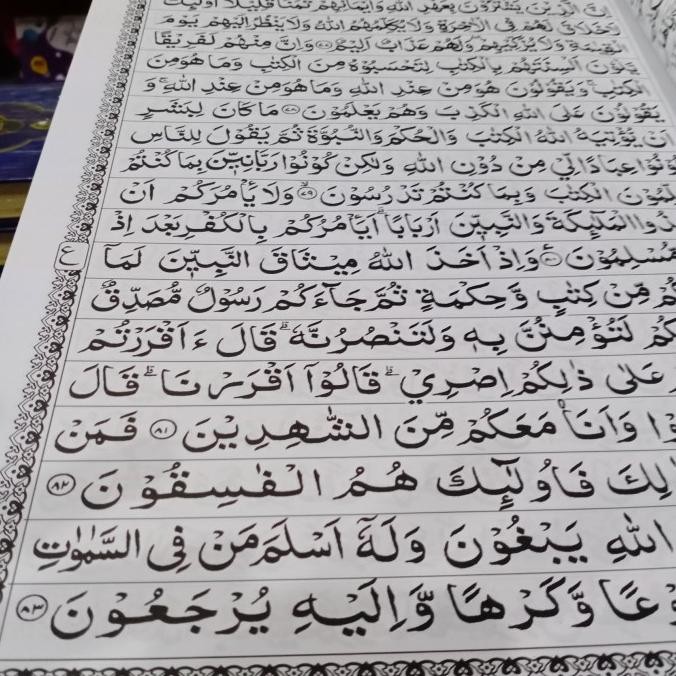 اِنَّ الَّذِيْنَ يَشْتَرُوْنَ بِعَهْدِ اللّٰهِ وَاَيْمَانِهِمْ ثَمَنًا قَلِيْلًا اُولٰٓئِكَ
لَاخَلَاقَ لَهُمْ فِى الْاٰخِرَةِ وَلَا يُكَلِّمُهُمُ اللّٰهُ وَلَا يَنْظُرُ اِلَيْهِمْ يَوْمَ
الْقِيٰمَةِ وَلَا يُزَكِّيْهِمْ وَلَهُمْ عَذَابٌ اَلِيْمٌ ۝٧٧ وَاِنَّ مِنْهُمْ لَفَرِيْقًا
يَّلْوٗنَ اَلْسِنَتَهُمْ بِالْكِتٰبِ لِتَحْسَبُوْهُ مِنَ الْكِتٰبِ وَمَا هُوَ مِنَ
الْكِتٰبِ وَيَقُوْلُوْنَ هُوَ مِنْ عِنْدِ اللّٰهِ وَمَا هُوَ مِنْ عِنْدِ اللّٰهِ ۚ وَ
يَقُوْلُوْنَ عَلَى اللّٰهِ الْكَذِبَ وَهُمْ يَعْلَمُوْنَ ۝٧٨ مَا كَانَ لِبَشَرٍ
اَنْ يُّؤْتِيَهُ اللّٰهُ الْكِتٰبَ وَالْحُكْمَ وَالنُّبُوَّةَ ثُمَّ يَقُوْلَ لِلنَّاسِ
كُوْنُوْا عِبَادًا لِّيْ مِنْ دُوْنِ اللّٰهِ وَلٰكِنْ كُوْنُوْا رَبَّانِيّٖنَ بِمَا كُنْتُمْ
تُعَلِّمُوْنَ الْكِتٰبَ وَبِمَا كُنْتُمْ تَدْرُسُوْنَ ۙ۝٧٩ وَلَا يَأْمُرَكُمْ اَنْ
تَتَّخِذُوا الْمَلٰٓئِكَةَ وَالنَّبِيّٖنَ اَرْبَابًا ۗ اَيَأْمُرُكُمْ بِالْكُفْرِ بَعْدَ اِذْ
مُّسْلِمُوْنَ ۝٨٠ وَاِذْ اَخَذَ اللّٰهُ مِيْثَاقَ النَّبِيّٖنَ لَمَآ
ع
كُمْ مِّنْ كِتٰبٍ وَّحِكْمَةٍ ثُمَّ جَآءَكُمْ رَسُوْلٌ مُّصَدِّقٌ
كُمْ لَتُؤْمِنُنَّ بِهٖ وَلَتَنْصُرُنَّهٗ ۗ قَالَ ءَاَقْرَرْتُمْ
عَلٰى ذٰلِكُمْ اِصْرِيْ ۗ قَالُوْٓا اَقْرَرْنَا ۗ قَالَ
وْا وَاَنَا۠ مَعَكُمْ مِّنَ الشّٰهِدِيْنَ ۝٨١ فَمَنْ
لِكَ فَاُولٰٓئِكَ هُمُ الْفٰسِقُوْنَ ۝٨٢
اللّٰهِ يَبْغُوْنَ وَلَهٗٓ اَسْلَمَ مَنْ فِى السَّمٰوٰتِ
وْعًا وَّكَرْهًا وَّاِلَيْهِ يُرْجَعُوْنَ ۝٨٣